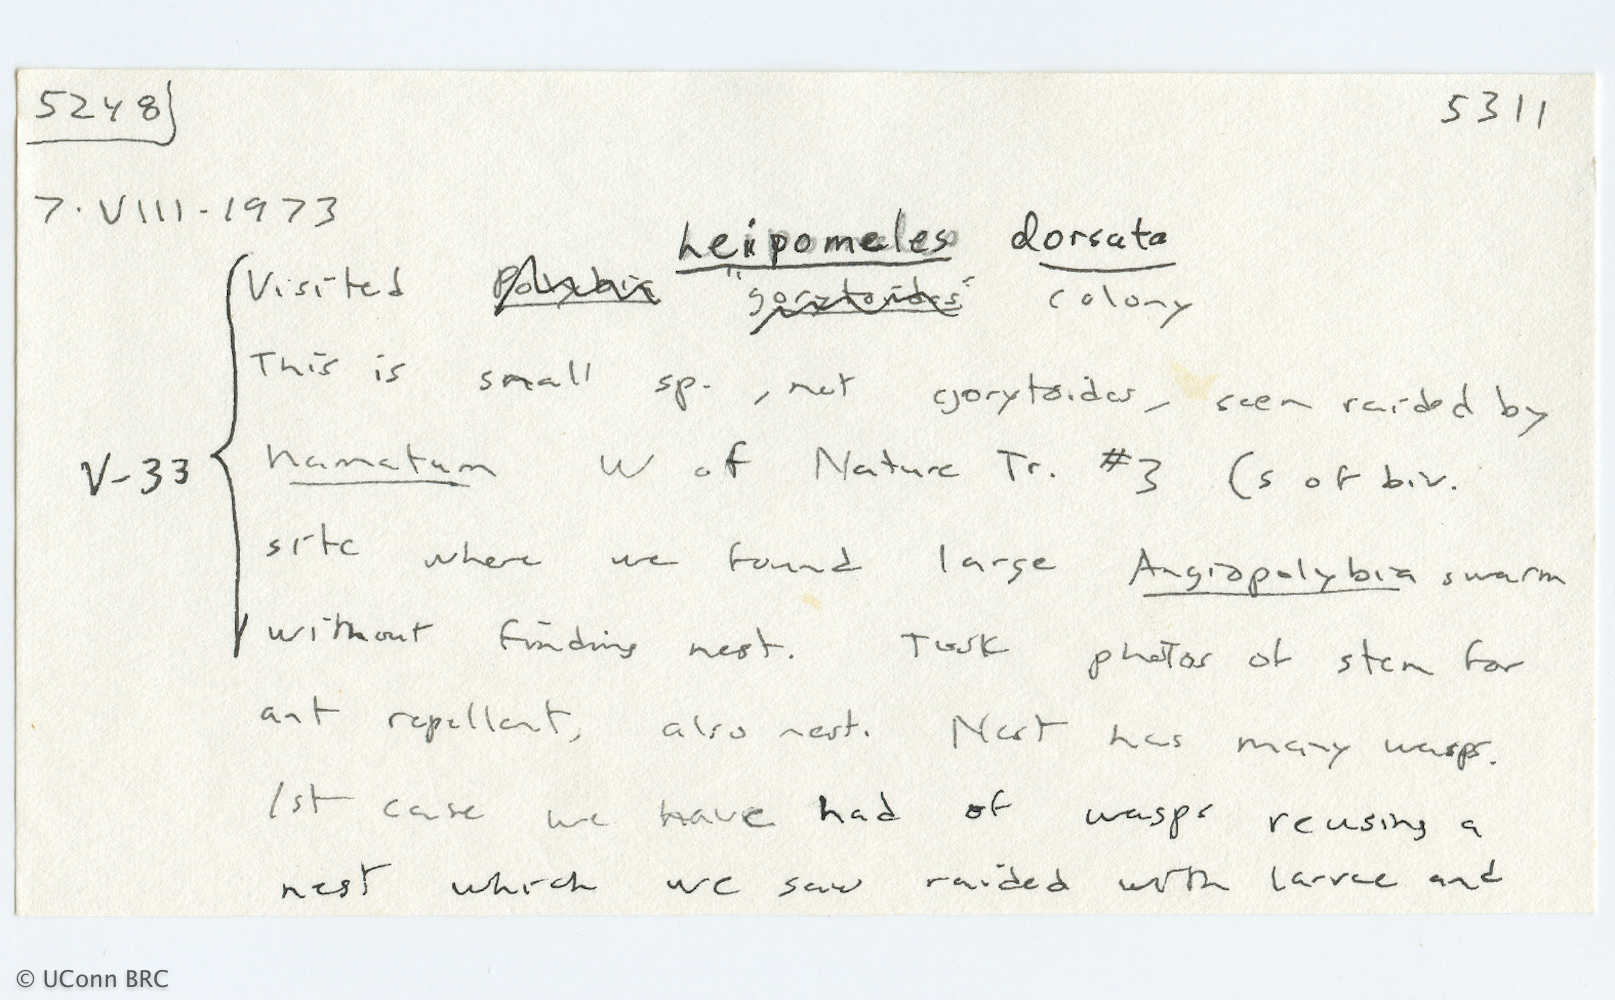 5248
5311
7·VIII-1973
Leipomeles dorsata
Visited Polybia "gorytoides" colony
This is small sp., not gorytoides, seen raided by
V-33
hamatum W of Nature Tr. #3 (S of biv.
site where we found large Angiopolybia swarm
without finding nest. Took photos of stem for
ant repellent, also nest. Nest has many wasps.
1st case we have had of wasps reusing a
nest which we saw raided with larvae and
© UConn BRC